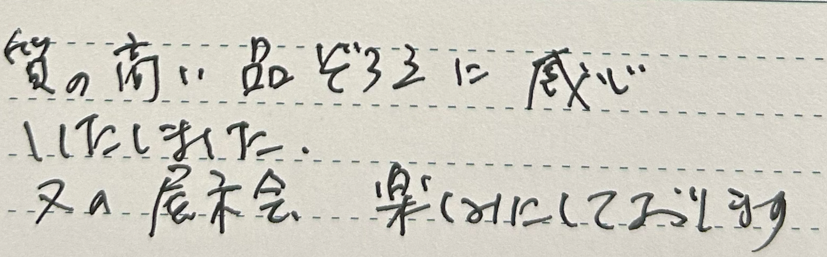 質の高い品ぞろえに感心
いたしました.
又の展示会、楽しみにしております